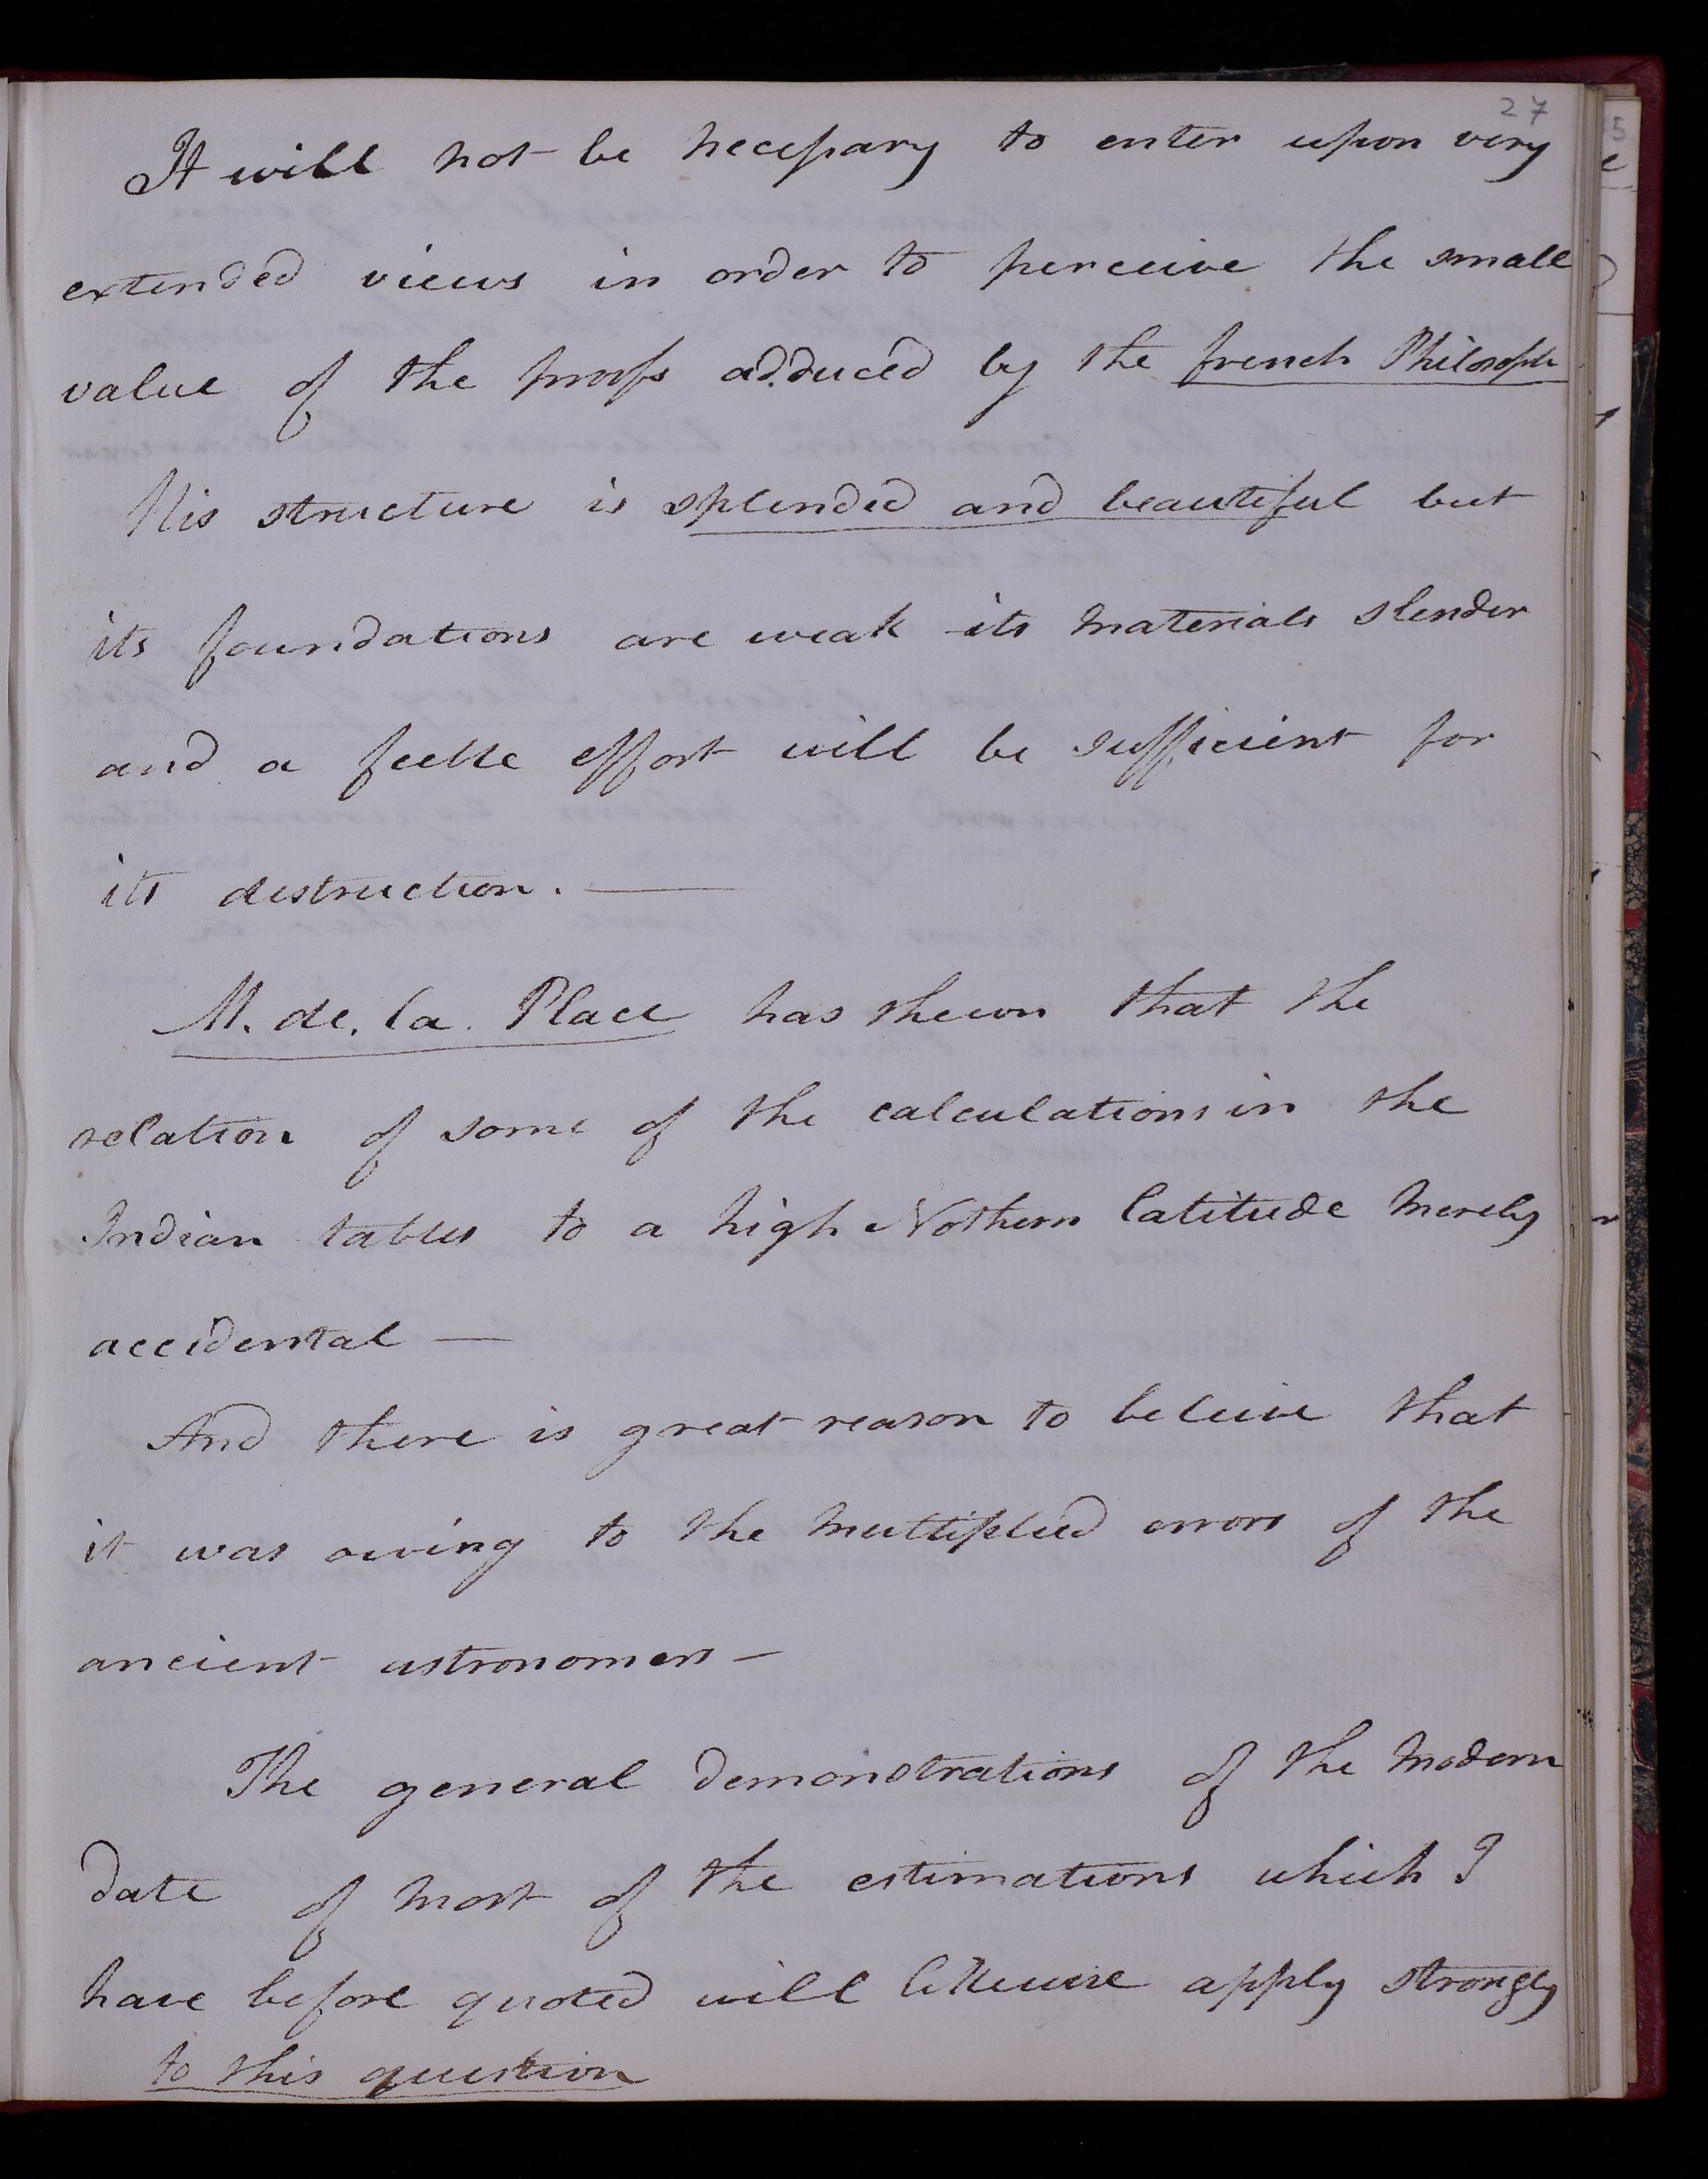 27
It will not be necessary to enter upon very
extended views in order to perceive the small
value of the proofs adduced by the french Philosoph
His structure is splended and beautiful but
its foundations are weak its materials slender
and a feeble effort will be sufficient for
its destruction. —
M. de. la. Place has shewn that the
relation of some of the calculations in the
Indian tables to a high Nothern latitude merely
accidental —
And there is great reason to beleive that
it was owing to the multiplied errors of the
ancient astronomers —
The general demonstrations of the modern
date of most of the estimations which I
have before quoted will likewise apply strongly
to this question